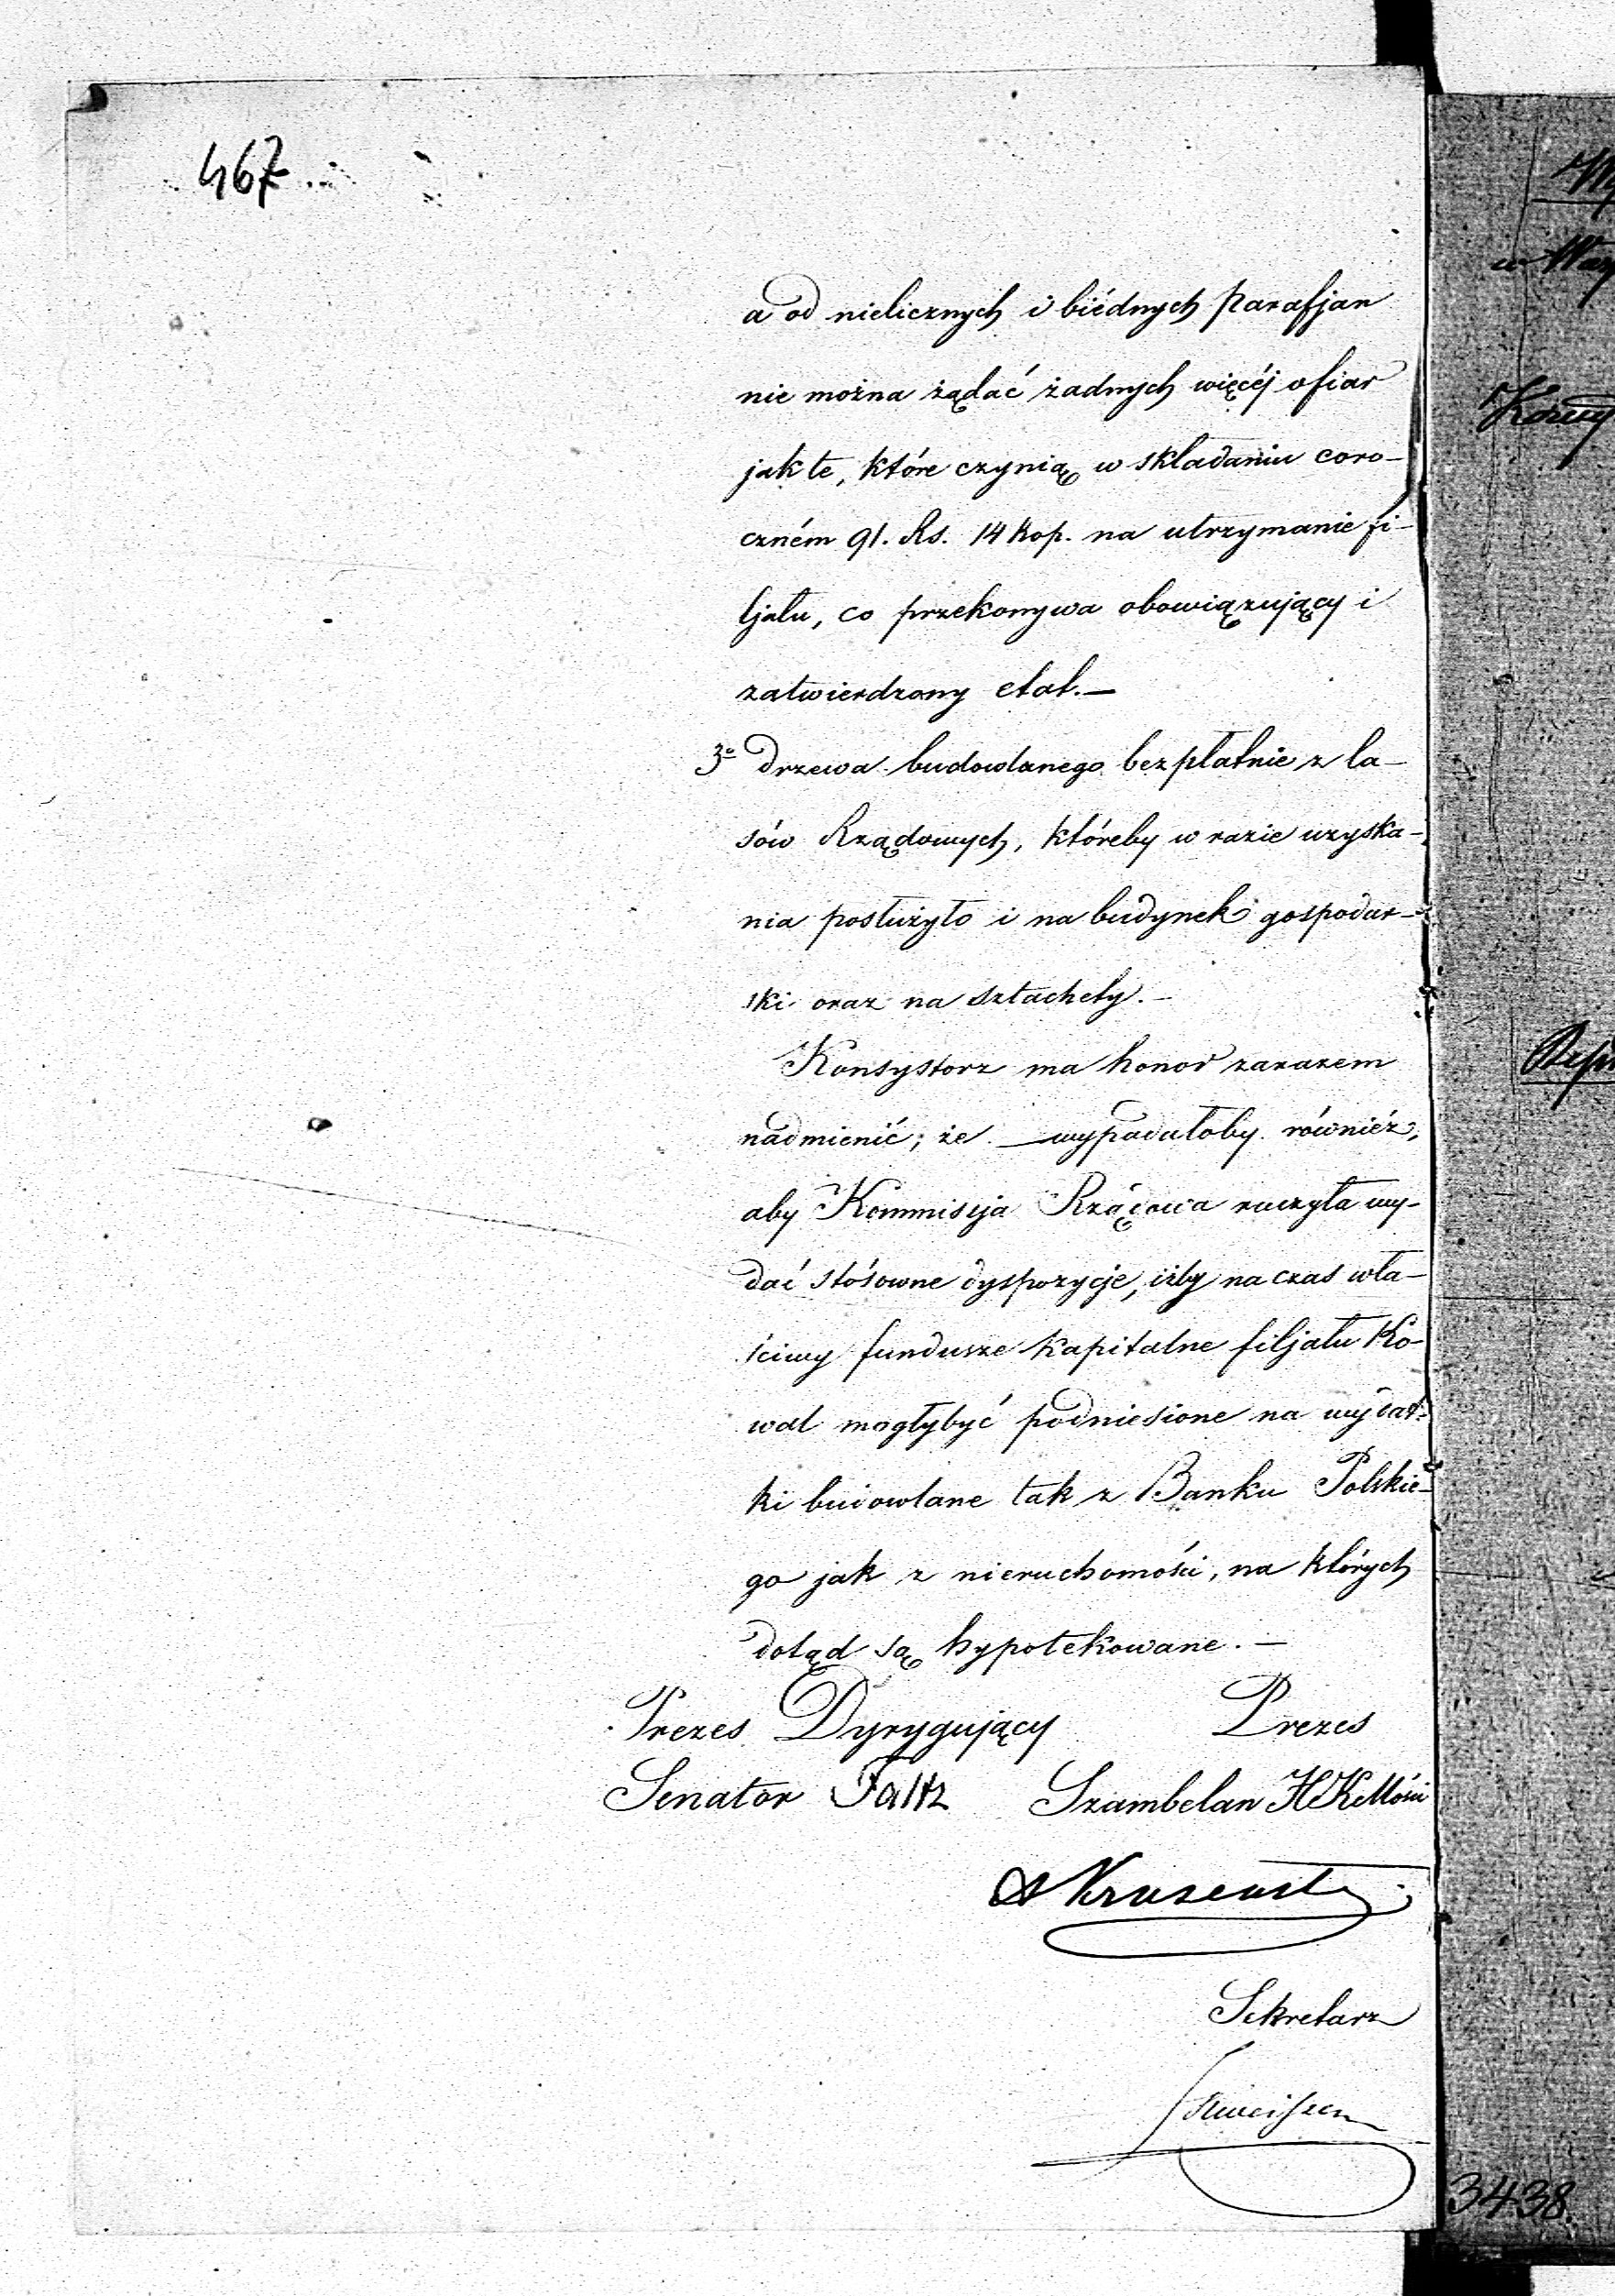 467
a od nielicznych i biédnych parafjan
nie można żądać żadnych więcéj ofiar
jak te, które czynią w składaniu coro-
czném 91. Rs. 14 kop. na utrzymanie fi-
ljału, co przekonywa obowiązujący i
zatwierdzony etat.—
3o drzewa budowlanego bezpłatnie z la-
sów Rządowych, któreby w razie uzyska-
nia posłużyło i na budynek gospodar-
ski oraz na sztachety.—
Konsystorz ma honor zarazem
nadmienić; że — wypadałoby również,
aby Kommisyja Rządowa raczyła wy-
dać stósowne dyspozycje, iżby na czas wła-
ściwy fundusze kapitalne filjału Ko-
wal mogły być podniesione na wydat-
ki budowlane tak z Banku Polskie-
go jak z nieruchomości, na których
dotąd są hypotekowane.—
Prezes Dyrygujący Prezes
Senator Faltz Szambelan
Sekretarz
3438.